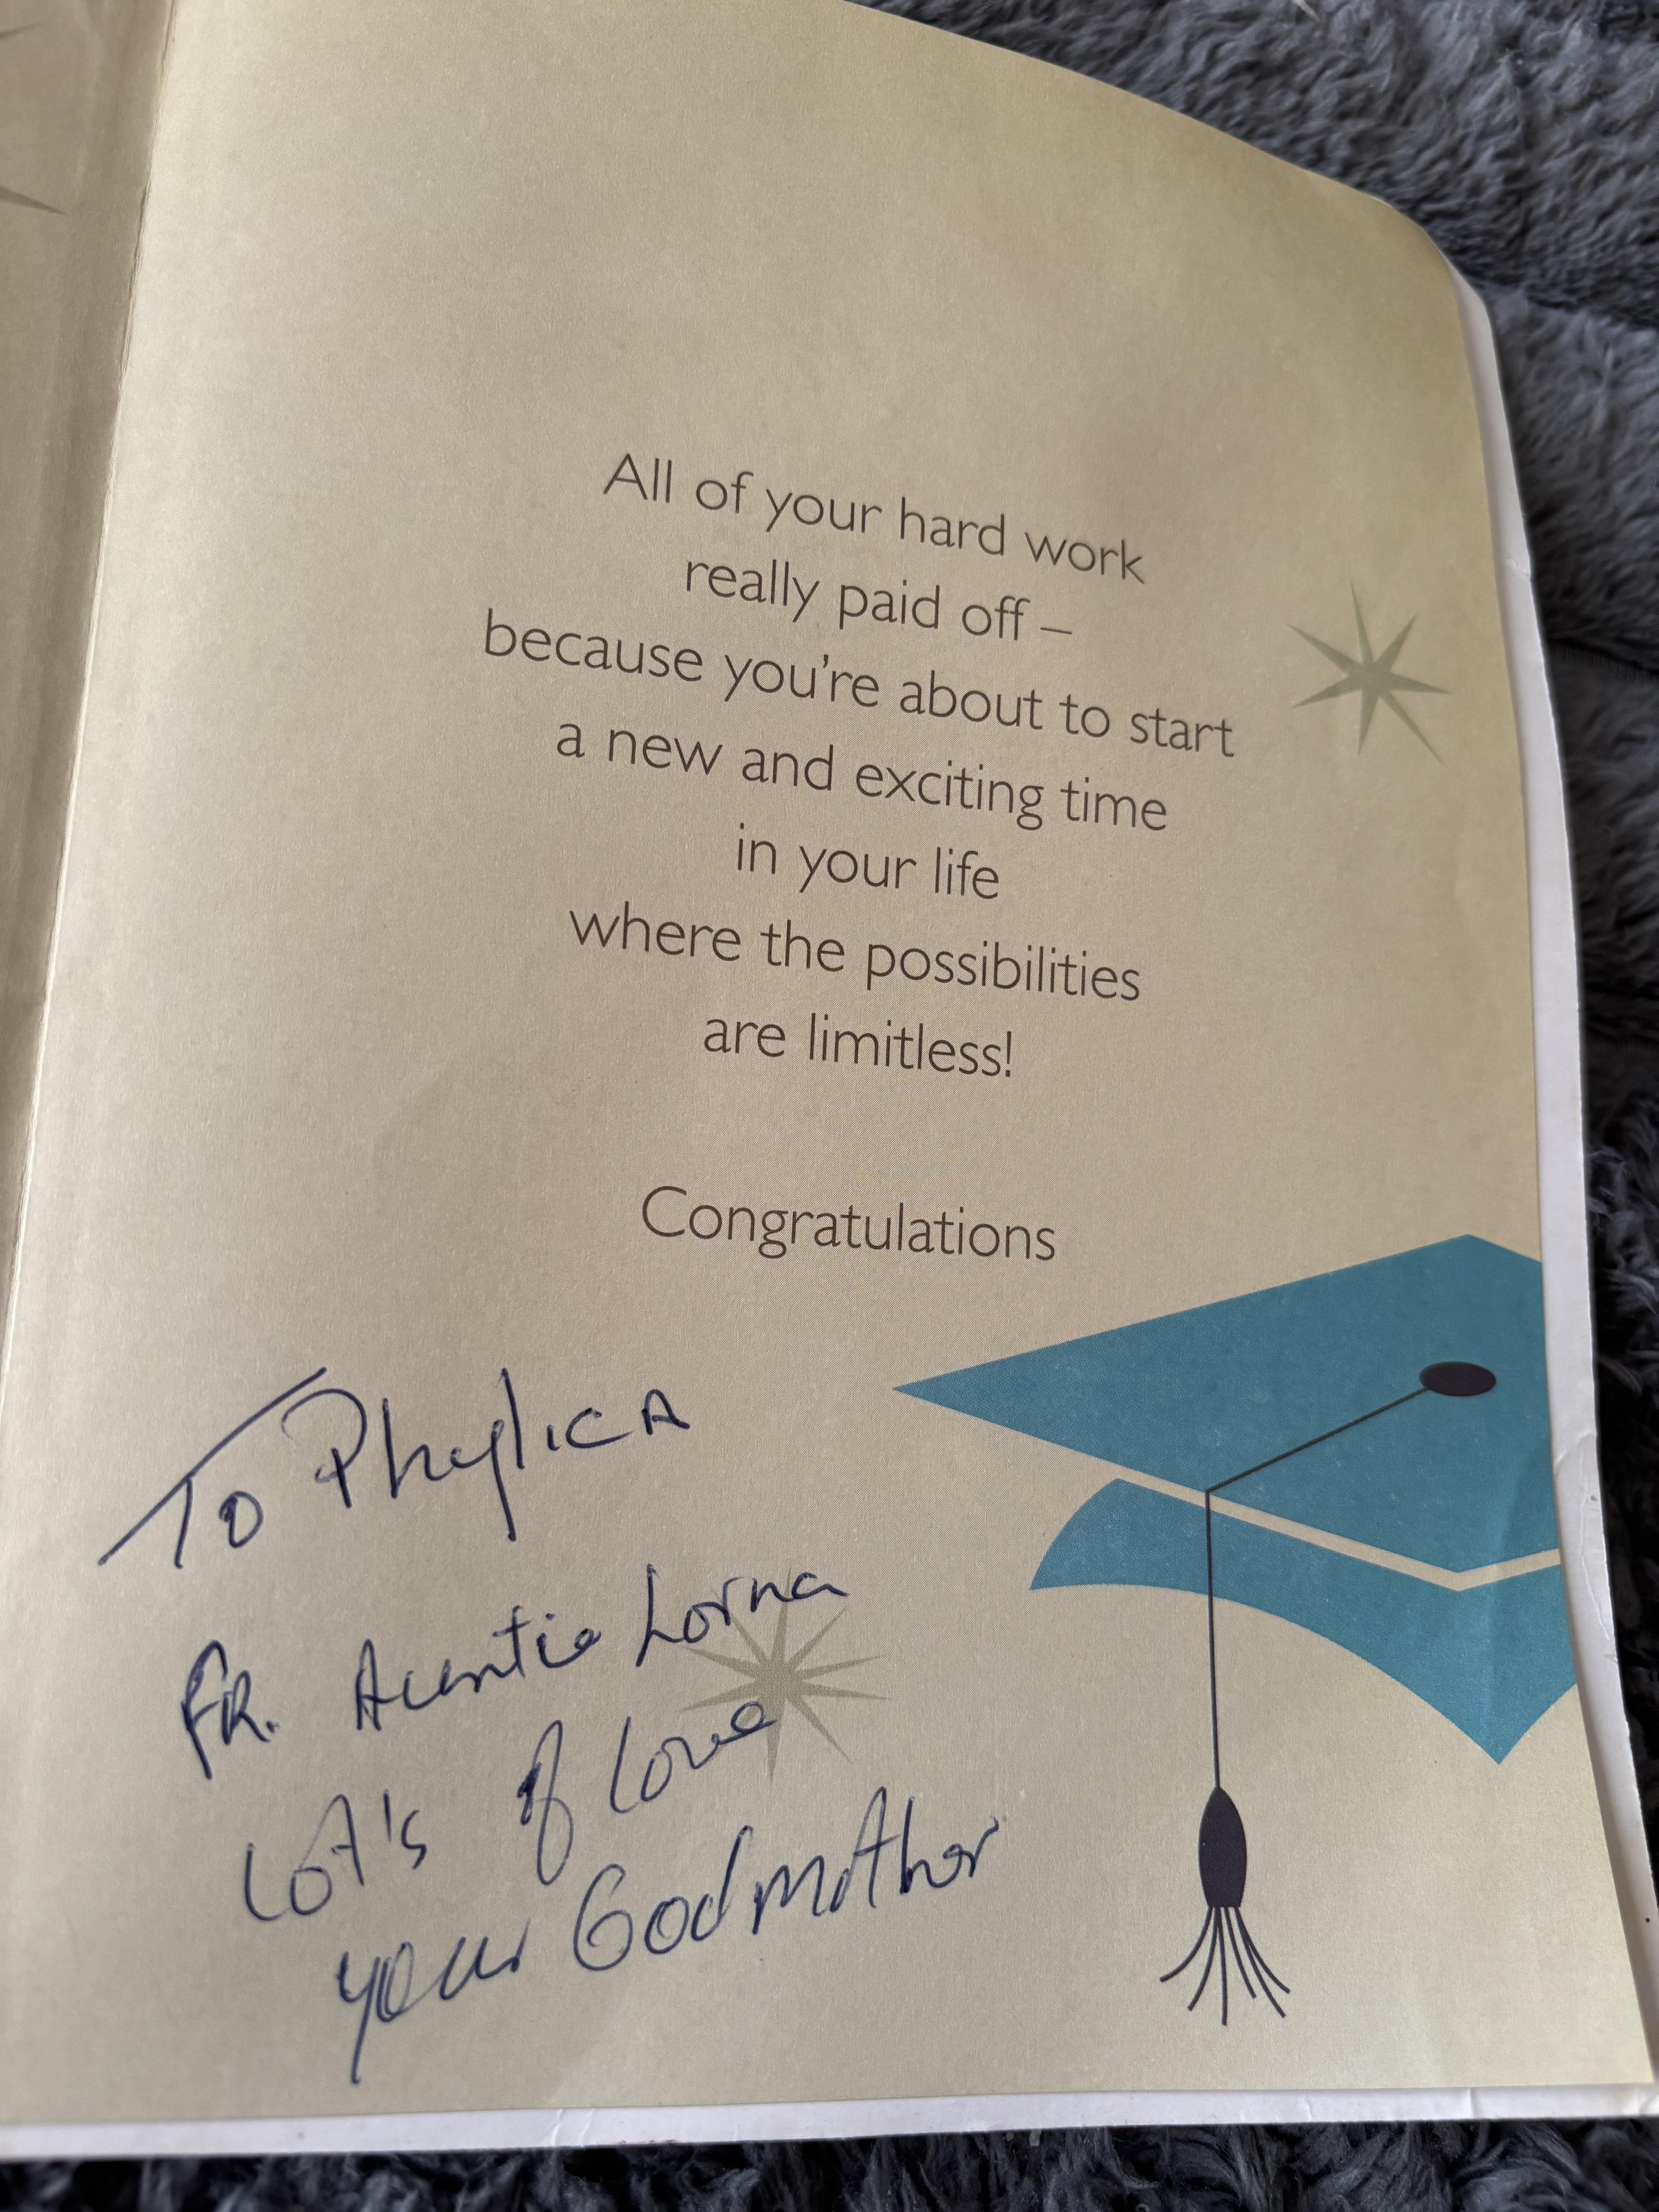 All of your hard work
really paid off –
because you're about to start
a new and exciting time
in your life
where the possibilities
are limitless!
Congratulations
To Phylica
FR. Auntie Lorna
Lot's of Love
your Godmother